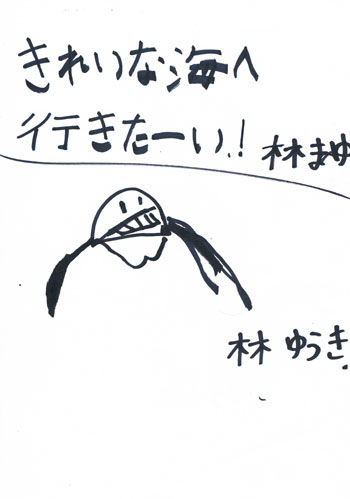 きれいな海へ
行きたーい!
林まゆ
林 ゆうき